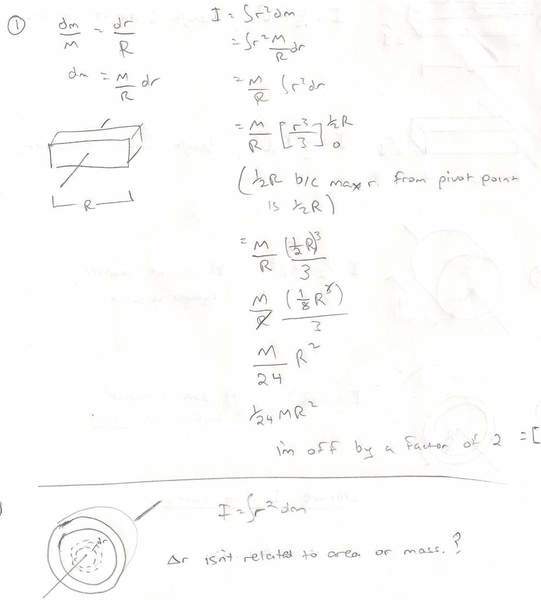 ① dm/M = dr/R
dm = M/R dr
R
I = ∫r²dm
= ∫r² M/R dr
= M/R ∫r²dr
= M/R [r³/3]₀^½R
(½R b/c max r from pivot point
is ½R)
= M/R (½R)³/3
M/R (⅛R³)/3
M/24 R²
1/24 MR²
im off by a factor of 2 =[
I = ∫r²dm
dr
Δr isn't related to area or mass.?